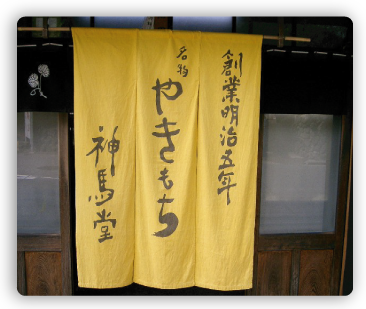 創業明治五年
名物
やきもち
神馬堂